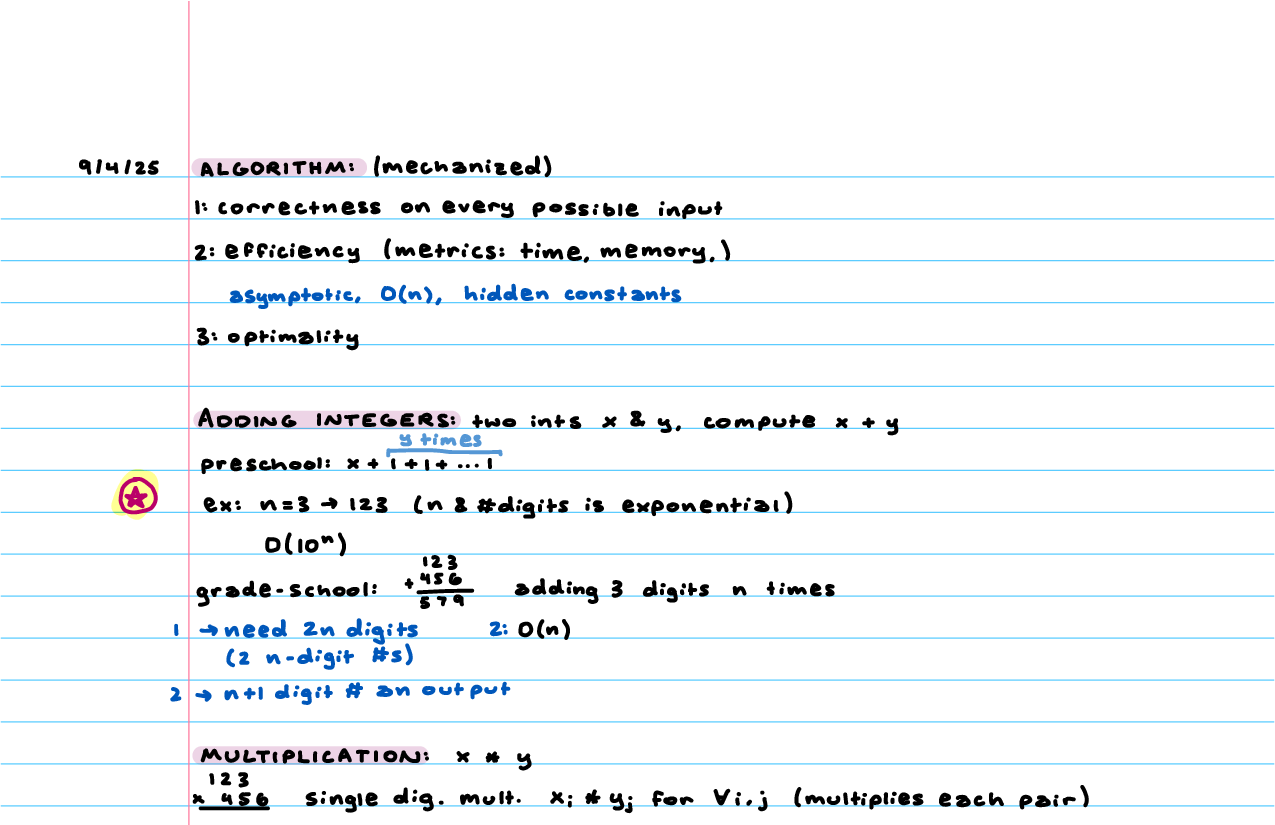 9/4/25 ALGORITHM: (mechanized)
1: correctness on every possible input
2: efficiency (metrics: time, memory, )
asymptotic, O(n), hidden constants
3: optimality
ADDING INTEGERS: two ints x & y, compute x + y
y times
preschool: x + 1 + 1 + ... 1
ex: n = 3 → 123 (n & #digits is exponential)
O(10ⁿ)
123
grade-school: + 456 adding 3 digits n times
579
1 → need 2n digits 2: O(n)
(2 n-digit #s)
2 → n+1 digit # an output
MULTIPLICATION: x * y
123
x 456 single dig. mult. xᵢ * yⱼ for ∀i,j (multiplies each pair)